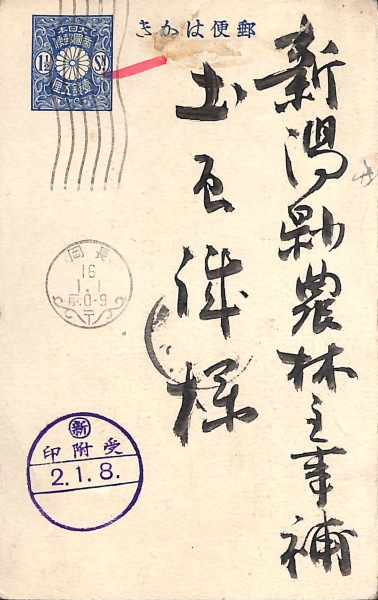 郵便はがき
大日本
帝国郵便
1½ Sn
壹錢五厘
新潟縣農林主事補
土
様
長岡
16
1.1
前0-9
〒
新
受附印
2.1.8.